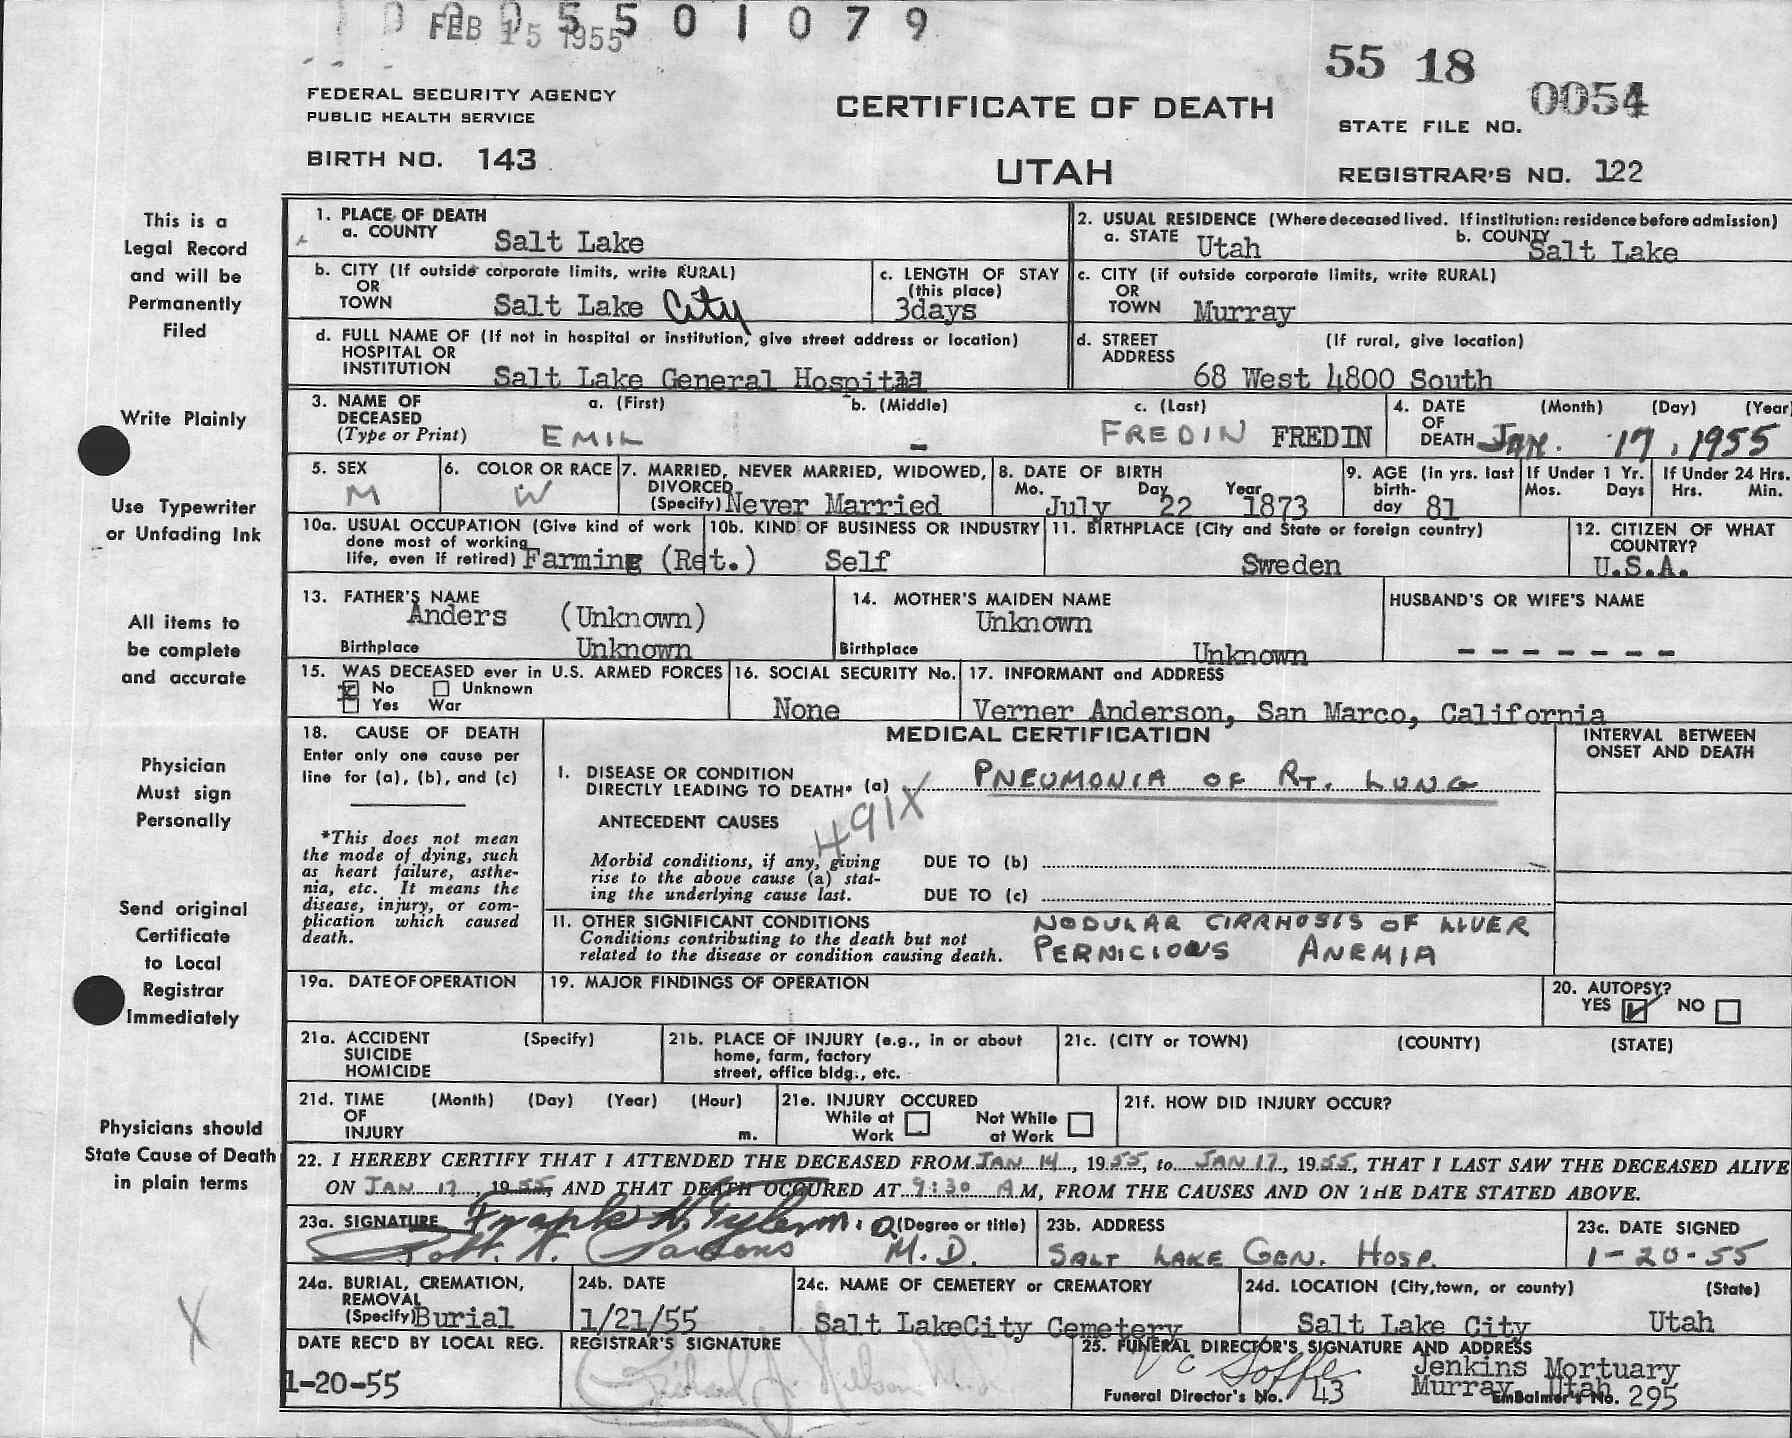 FEB 15 1955
5 5 0 1 0 7 9
55 18
0054
FEDERAL SECURITY AGENCY
PUBLIC HEALTH SERVICE
CERTIFICATE OF DEATH
STATE FILE NO.
BIRTH NO. 143
UTAH
REGISTRAR'S NO. 122
This is a
Legal Record
and will be
Permanently
Filed
Write Plainly
Use Typewriter
or Unfading Ink
All items to
be complete
and accurate
Physician
Must sign
Personally
Send original
Certificate
to Local
Registrar
Immediately
Physicians should
State Cause of Death
in plain terms
X
1. PLACE OF DEATH
a. COUNTY Salt Lake
2. USUAL RESIDENCE (Where deceased lived. If institution: residence before admission)
a. STATE Utah b. COUNTY Salt Lake
b. CITY (If outside corporate limits, write RURAL)
OR
TOWN Salt Lake City
c. LENGTH OF STAY
(this place)
3days
c. CITY (if outside corporate limits, write RURAL)
OR
TOWN Murray
d. FULL NAME OF (If not in hospital or institution, give street address or location)
HOSPITAL OR
INSTITUTION Salt Lake General Hospital
d. STREET (If rural, give location)
ADDRESS
68 West 4800 South
3. NAME OF a. (First) b. (Middle) c. (Last)
DECEASED
(Type or Print) EMIL - FREDIN FREDIN
4. DATE (Month) (Day) (Year)
OF
DEATH Jan. 17, 1955
5. SEX
M
6. COLOR OR RACE
W
7. MARRIED, NEVER MARRIED, WIDOWED,
DIVORCED
(Specify) Never Married
8. DATE OF BIRTH
Mo. Day Year
July 22 1873
9. AGE (in yrs. last
birth-
day 81
If Under 1 Yr.
Mos. Days
If Under 24 Hrs.
Hrs. Min.
10a. USUAL OCCUPATION (Give kind of work
done most of working
life, even if retired) Farming (Ret.)
10b. KIND OF BUSINESS OR INDUSTRY
Self
11. BIRTHPLACE (City and State or foreign country)
Sweden
12. CITIZEN OF WHAT
COUNTRY?
U.S.A.
13. FATHER'S NAME
Anders (Unknown)
Birthplace Unknown
14. MOTHER'S MAIDEN NAME
Unknown
Birthplace Unknown
HUSBAND'S OR WIFE'S NAME
- - - - - - -
15. WAS DECEASED ever in U.S. ARMED FORCES
No Unknown
Yes War
16. SOCIAL SECURITY No.
None
17. INFORMANT and ADDRESS
Verner Anderson, San Marco, California
18. CAUSE OF DEATH
Enter only one cause per
line for (a), (b), and (c)
*This does not mean
the mode of dying, such
as heart failure, asthe-
nia, etc. It means the
disease, injury, or com-
plication which caused
death.
MEDICAL CERTIFICATION
INTERVAL BETWEEN
ONSET AND DEATH
I. DISEASE OR CONDITION
DIRECTLY LEADING TO DEATH* (a) PNEUMONIA OF RT. LUNG
491X
ANTECEDENT CAUSES
Morbid conditions, if any, giving
rise to the above cause (a) stat-
ing the underlying cause last.
DUE TO (b)
DUE TO (c)
II. OTHER SIGNIFICANT CONDITIONS
Conditions contributing to the death but not
related to the disease or condition causing death.
NODULAR CIRRHOSIS OF LIVER
PERNICIOUS ANEMIA
19a. DATE OF OPERATION
19. MAJOR FINDINGS OF OPERATION
20. AUTOPSY?
YES NO
21a. ACCIDENT (Specify)
SUICIDE
HOMICIDE
21b. PLACE OF INJURY (e.g., in or about
home, farm, factory
street, office bldg., etc.
21c. (CITY or TOWN) (COUNTY) (STATE)
21d. TIME (Month) (Day) (Year) (Hour)
OF
INJURY m.
21e. INJURY OCCURED
While at Not While
Work at Work
21f. HOW DID INJURY OCCUR?
22. I HEREBY CERTIFY THAT I ATTENDED THE DECEASED FROM JAN 14, 1955, to JAN 17, 1955, THAT I LAST SAW THE DECEASED ALIVE
ON JAN 17, 1955, AND THAT DEATH OCCURED AT 9:30 AM, FROM THE CAUSES AND ON THE DATE STATED ABOVE.
23a. SIGNATURE Frank H. Tyler M.D. (Degree or title)
Robt. H. Parsons M.D.
23b. ADDRESS
SALT LAKE GEN. HOSP.
23c. DATE SIGNED
1-20-55
24a. BURIAL, CREMATION,
REMOVAL
(Specify) Burial
24b. DATE
1/21/55
24c. NAME OF CEMETERY or CREMATORY
Salt LakeCity Cemetery
24d. LOCATION (City, town, or county) (State)
Salt Lake City Utah
DATE REC'D BY LOCAL REG.
1-20-55
REGISTRAR'S SIGNATURE
25. FUNERAL DIRECTOR'S SIGNATURE AND ADDRESS
Jenkins Mortuary
Murray Utah
Funeral Director's No. 43
Embalmer's No. 295